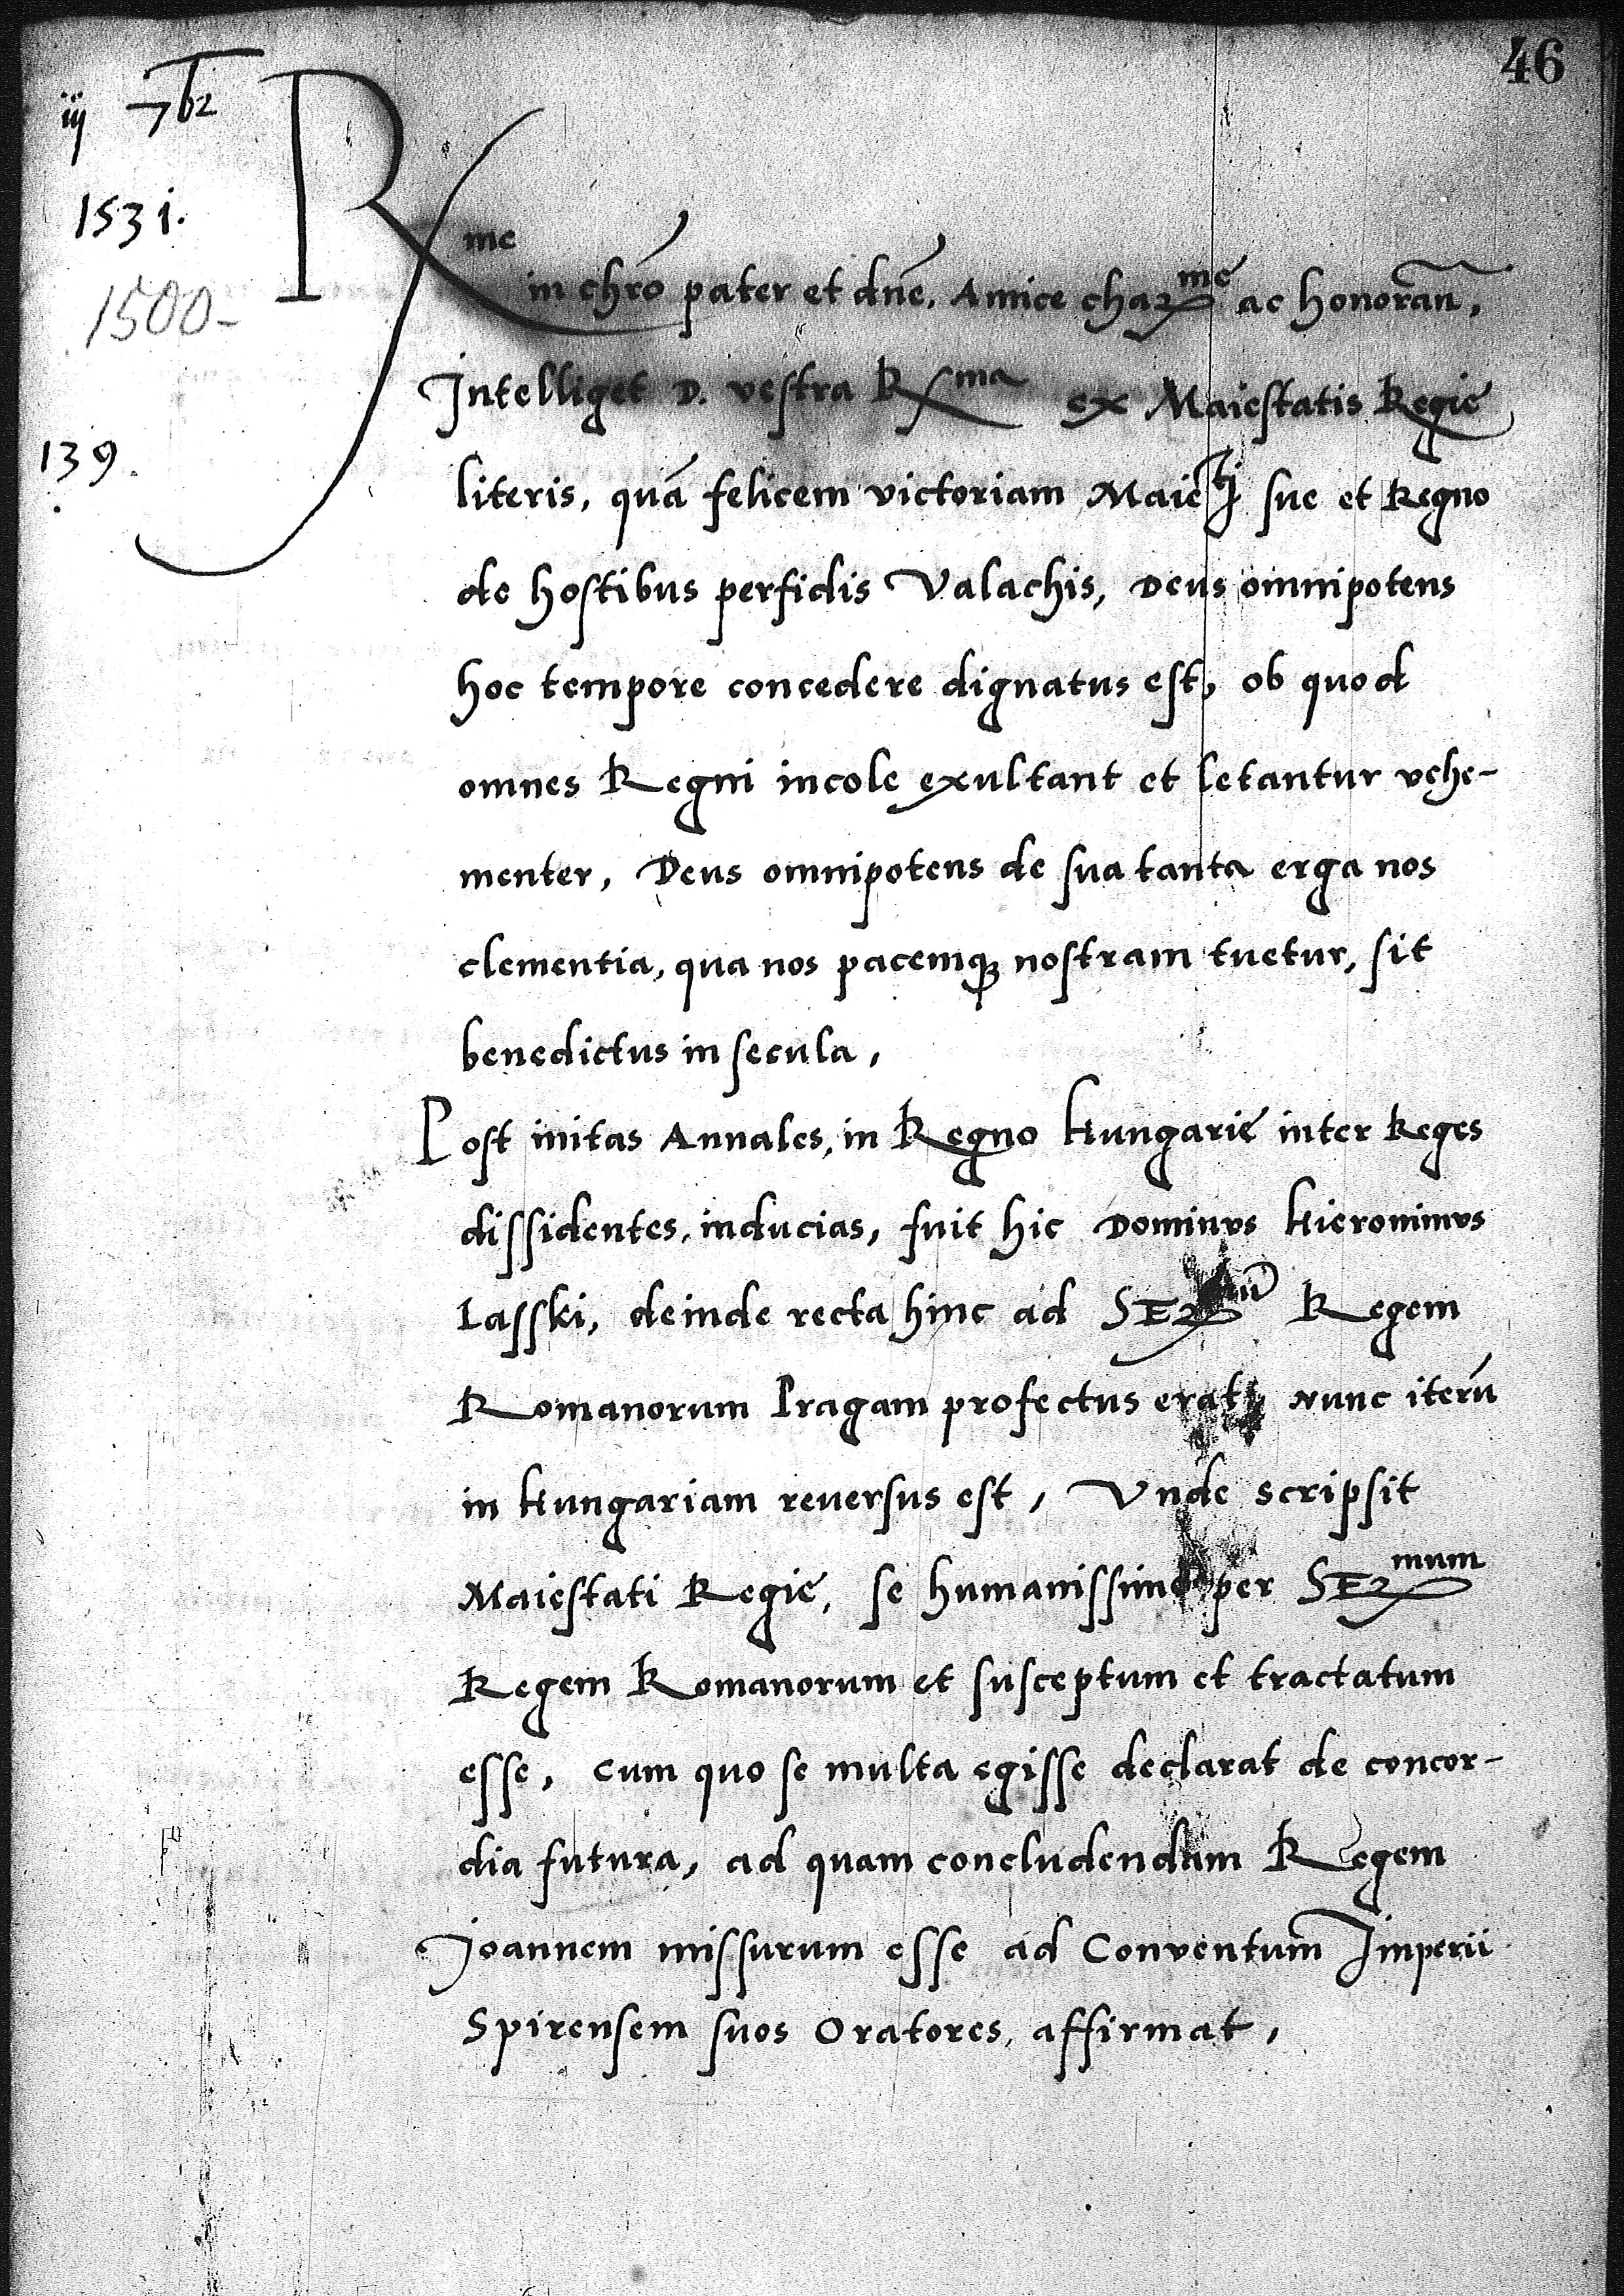 46
iij 7b2
1531.
1500-
139.
Rme in chro pater et dne. Amice charme ac honoran,
Intelliget D. vestra Rma ex Maiestatis Regie
literis, quā felicem victoriam Maietj sue et Regno
de hostibus perfidis Valachis, Deus omnipotens
hoc tempore concedere dignatus est, ob quod
omnes Regni incole exultant et letantur vehe-
menter, Deus omnipotens de sua tanta erga nos
clementia, qua nos pacemq; nostram tuetur, sit
benedictus in secula,
Post initas Annales, in Regno Hungarie inter Reges
dissidentes, inducias, fuit hic Dominus Hieronimus
Lasski, deinde recta hinc ad SERmū Regem
Romanorum Pragam profectus erat, nunc iterū
in Hungariam reuersus est, Vnde scripsit
Maiestati Regie, se humanissime per SERmum
Regem Romanorum et susceptum et tractatum
esse, cum quo se multa egisse declarat de concor-
dia futura, ad quam concludendam Regem
Joannem missurum esse ad Conventum Imperii
Spirensem suos Oratores, affirmat,